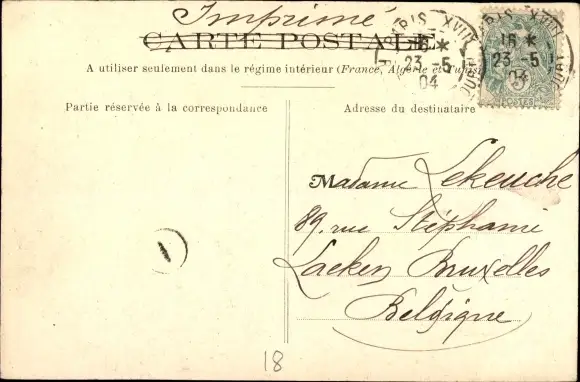 Imprimé
CARTE POSTALE
A utiliser seulement dans le régime intérieur (France, Algérie et Tunisie
Partie réservée à la correspondance
Adresse du destinataire
PARIS XVIII
16 *
23 -5
04
PARIS XVIII
16 *
23 -5
04
5
POSTES
Madame Lekeuche
89, rue Stéphanie
Laeken Bruxelles
Belgique
18